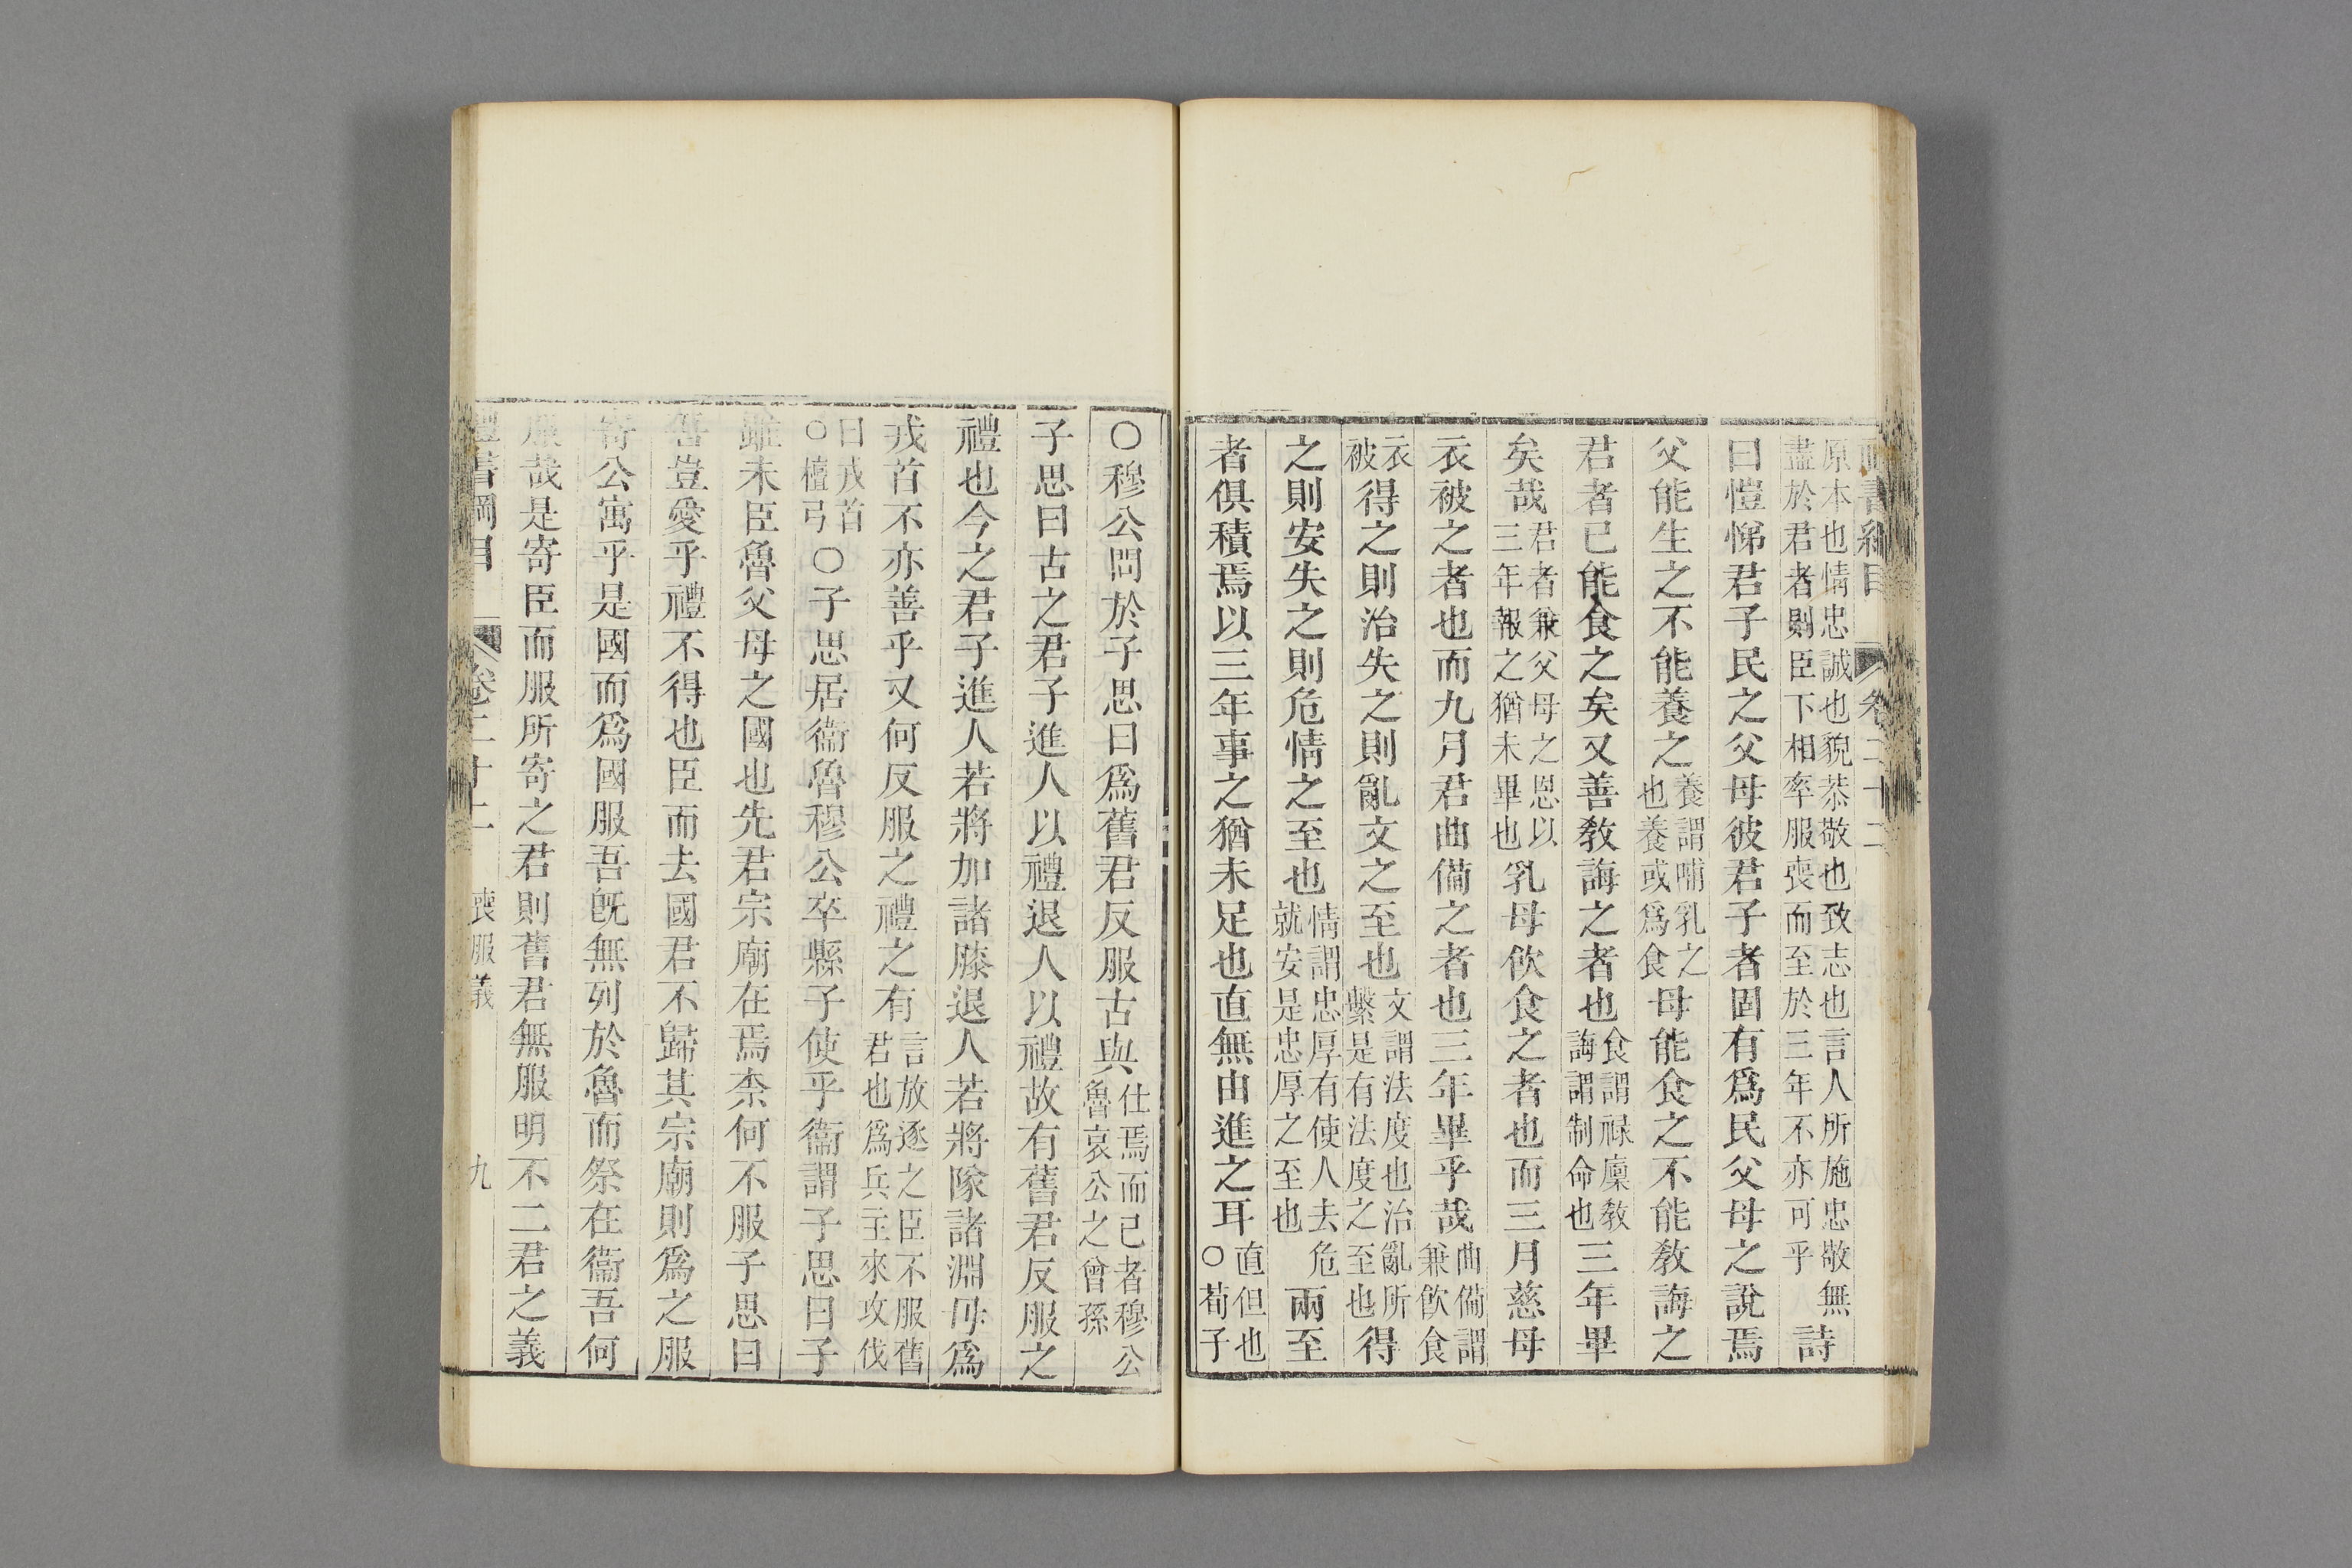 原本也情忠誠也貌恭敬也致志也言人所施忠敬無
盡於君者則臣下相率服喪而至於三年不亦可乎
詩
曰愷悌君子民之父母彼君子者固有爲民父母之說焉
父能生之不能養之
養謂哺乳之
也養或爲食
母能食之不能敎誨之
君者已能食之矣又善敎誨之者也
食謂祿廩敎
誨謂制命也
三年畢
矣哉
君者兼父母之恩以
三年報之猶未畢也
乳母飮食之者也而三月慈母
衣被之者也而九月君曲備之者也三年畢乎哉
曲備謂
兼飮食
衣
被
得之則治失之則亂文之至也
文謂法度也治亂所
繫是有法度之至也
得
之則安失之則危情之至也
情謂忠厚有使人去危
就安是忠厚之至也
兩至
者俱積焉以三年事之猶未足也直無由進之耳
直但也
○荀子
○穆公問於子思曰爲舊君反服古與
仕焉而已者穆公
魯哀公之曾孫
子思曰古之君子進人以禮退人以禮故有舊君反服之
禮也今之君子進人若將加諸膝退人若將隊諸淵毋爲
戎首不亦善乎又何反服之禮之有
言放逐之臣不服舊
君也爲兵主來攻伐
曰戎首
○檀弓
○子思居衞魯穆公卒縣子使乎衞謂子思曰子
雖未臣魯父母之國也先君宗廟在焉柰何不服子思曰
吾豈愛乎禮不得也臣而去國君不歸其宗廟則爲之服
寄公寓乎是國而爲國服吾旣無列於魯而祭在衞吾何
服哉是寄臣而服所寄之君則舊君無服明不二君之義
禮書綱目
卷二十二
喪服義
九